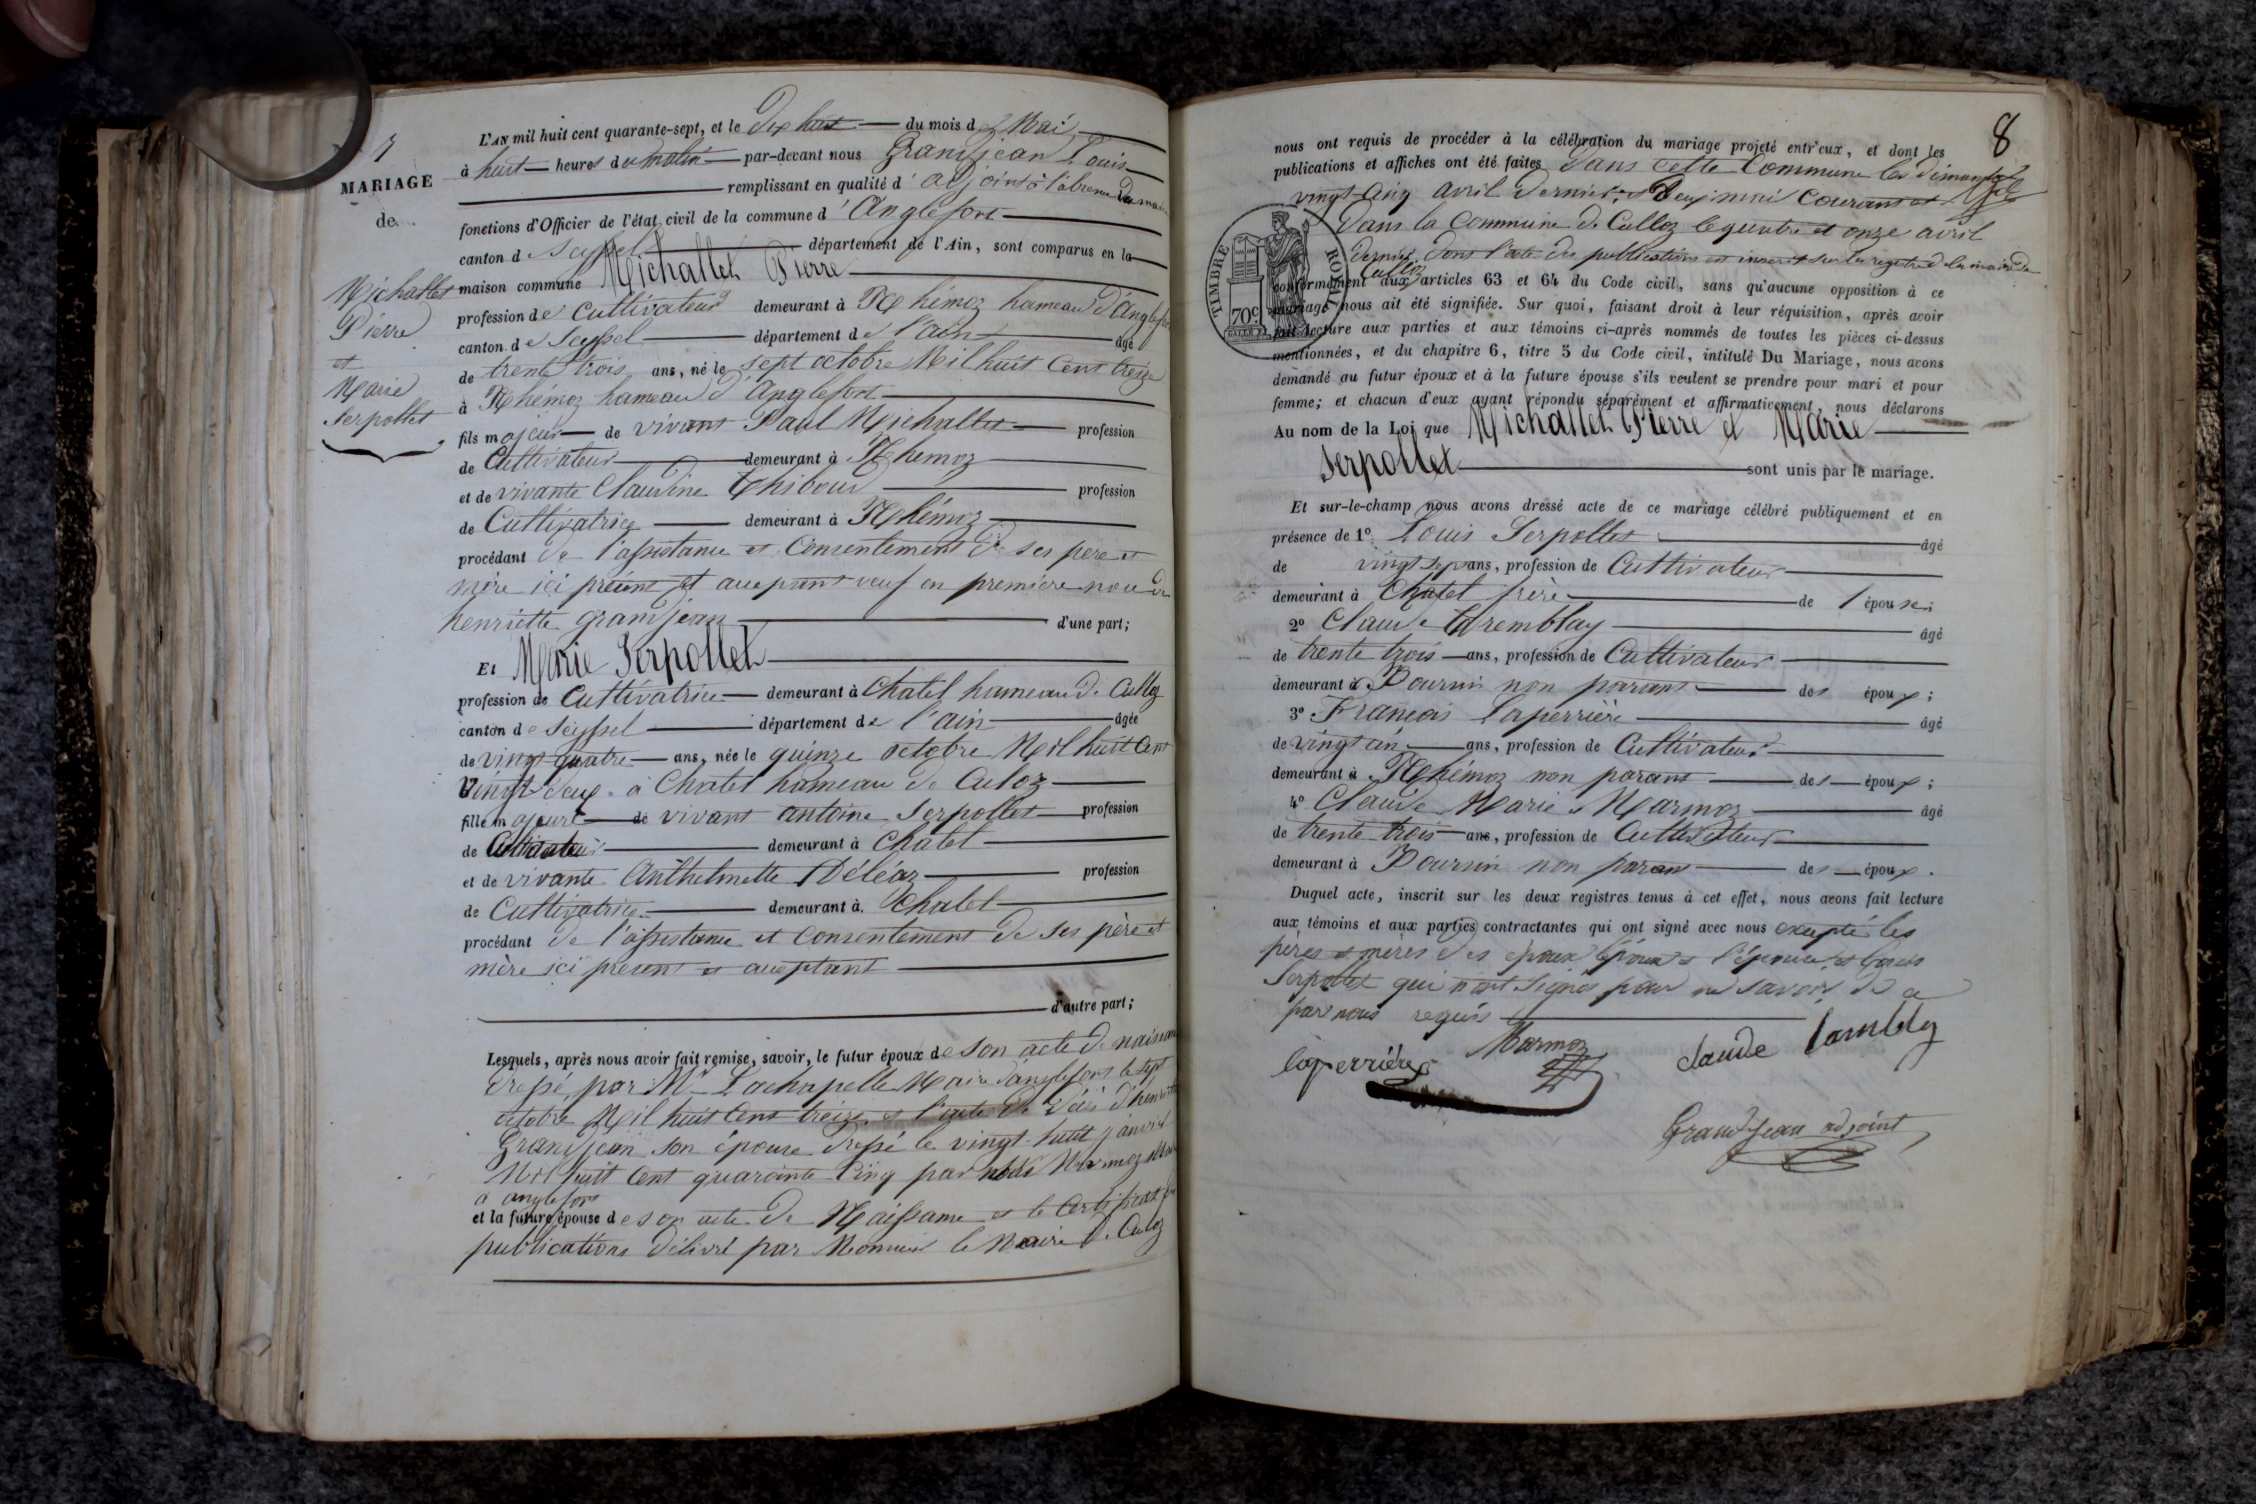 7
MARIAGE
de
Michallet
Pierre
et
Marie
Serpollet
L'AN mil huit cent quarante-sept, et le dix huit du mois de Mai
à huit heures du matin par-devant nous Grandjean Louis
remplissant en qualité d'adjoint à l'absence du maire
fonctions d'Officier de l'état civil de la commune d'Anglefort
canton de Seyssel département de l'Ain, sont comparus en la
maison commune Michallet Pierre
profession de cultivateur demeurant à Rhémoz hameau d'Anglefort
canton de Seyssel département de l'ain âgé
de trente trois ans, né le sept octobre Mil huit Cent treize
à Rhémoz hameau d'Anglefort
fils majeur de vivant Paul Michallet profession
de Cultivateur demeurant à Rhémoz
et de vivante Claudine Thiboud profession
de Cultivatrice demeurant à Rhémoz
procédant de l'assistance et Consentement de ses père et
mère ici présent et acceptant veuf en premiere noce de
henriette grandjean d'une part;
Et Marie Serpollet
profession de Cultivatrice demeurant à Chatel hameau de Culloz
canton de Seyssel département de l'ain âgée
de vingt quatre ans, née le quinze octobre Mil huit Cent
Vingt deux à Chatel hameau de Culoz
fille majeure de vivant antoine Serpollet profession
de Cultivateur demeurant à Chatel
et de vivante Anthelmette Déléaz profession
de Cultivatrice demeurant à Chatel
procédant de l'assistance et Consentement de ses père et
mère ici présent et acceptant
d'autre part;
Lesquels, après nous avoir fait remise, savoir, le futur époux de son acte de naissance
dressé par Mr Lachapelle Maire d'anglefort le sept
octobre Mil huit Cent treize et l'acte de décès d'henriette
Grandjean son épouse dressé le vingt huit janvier
Mil huit Cent quarante Cinq par nous Marmoz Maire
à anglefort
et la future épouse de son acte de Naissance et le Certificat de
publications délivré par Monsieur le Maire de Culoz
8
nous ont requis de procéder à la célébration du mariage projeté entr'eux, et dont les
publications et affiches ont été faites dans cette Commune les dimanches
vingt Cinq avril dernier et Deux mai courant et
Dans la Commune de Culloz le quatre et onze avril
dernier dont l'acte des publications est inscrit sur les registres de la mairie de
Culloz
conformément aux articles 63 et 64 du Code civil, sans qu'aucune opposition à ce
mariage nous ait été signifiée. Sur quoi, faisant droit à leur réquisition, après avoir
fait lecture aux parties et aux témoins ci-après nommés de toutes les pièces ci-dessus
mentionnées, et du chapitre 6, titre 5 du Code civil, intitulé Du Mariage, nous avons
demandé au futur époux et à la future épouse s'ils veulent se prendre pour mari et pour
femme; et chacun d'eux ayant répondu séparément et affirmativement, nous déclarons
Au nom de la Loi que Michallet Pierre et Marie
Serpollet sont unis par le mariage.
TIMBRE ROYAL
70c
Et sur-le-champ nous avons dressé acte de ce mariage célébré publiquement et en
présence de 1º Louis Serpollet âgé
de vingt sept ans, profession de Cultivateur
demeurant à Chatel frère de l'épouse;
2º Claude Tremblay âgé
de trente trois ans, profession de Cultivateur
demeurant à Boursin non parant des époux;
3º François Laperrière âgé
de vingt cin ans, profession de Cultivateur
demeurant à Rhémoz non parant des époux;
4º Claude Marie Marmoz âgé
de trente trois ans, profession de Cultivateur
demeurant à Boursin non parant des époux.
Duquel acte, inscrit sur les deux registres tenus à cet effet, nous avons fait lecture
aux témoins et aux parties contractantes qui ont signé avec nous excepté les
pères et mères des époux l'époux et l'épouse et Louis
Serpollet qui n'ont signés pour ne savoir de ce
par nous requis
laperrière Marmoz claude
Grandjean adjoint